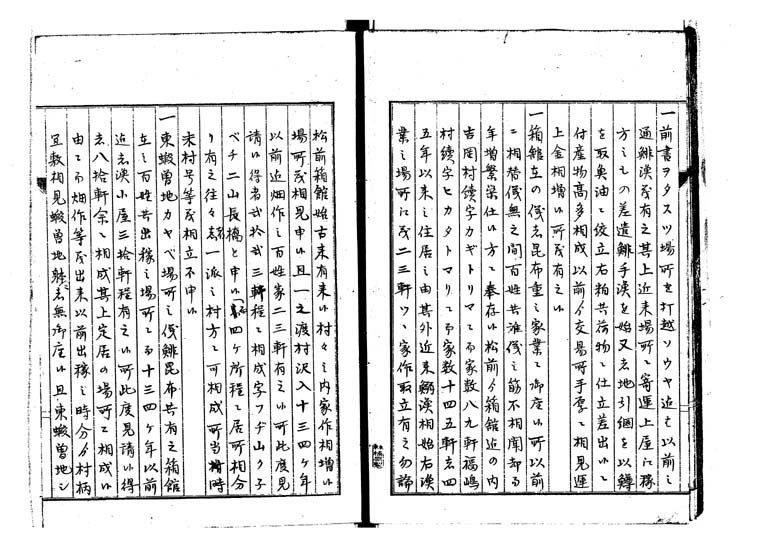 一前書ヲタスツ場所を打越ソウヤ迄も以前ニ
通鯡漁茂有之其上近来場所ニて寄運上屋江稼
方之もの差遣鯡手漁を始又者地引網を以鱒
を取魚油ニ絞立右粕共荷物ニ仕立差出いニ
付産物高多相成以前ゟ交易所手厚ニ相見運
上金相増い所茂有之い
一箱館在の儀者昆布重之家業ニて御座い所以前
ニ相替儀無之間百姓共難儀之筋不相聞却而
年増繁栄仕い方ニ奉存い松前ゟ箱館迄の内
吉岡村続字ギトリマニて家数八九軒福嶋
村続字ヒカタトマリニて家数十四五軒者四
五年以来之住居之由其外近来鰯漁相始右漁
業之場所江茂二三軒ツヽ家作取立有之勿論
松前箱館始古来有来い村々之内家作相増い
場所茂相見申い且一之渡村沢入十三四ケ年
以前迄畑作之百姓家二三軒有之い所此度見
請い得者弐拾弐三軒程ニ相成字フヂ山ク子
ベチ二山長橋と申い四ケ所程ニ居所相分
り有之往々者一派之村方ニ可相成所当時
未村号等茂相立不申い
一東蝦夷地カヤベ場所之儀鯡昆布共有之箱館
在之百姓共出稼之場所ニて十三四ケ年以前
迄者漁小屋三拾軒程有之い所此度見請い得
者八拾軒余ニ相成其上定居の場所ニ相成い
由ニて畑作等茂出来以前出稼之時分ゟ村柄
宜敷相見蝦夷地躰者無御座い且東蝦夷地之